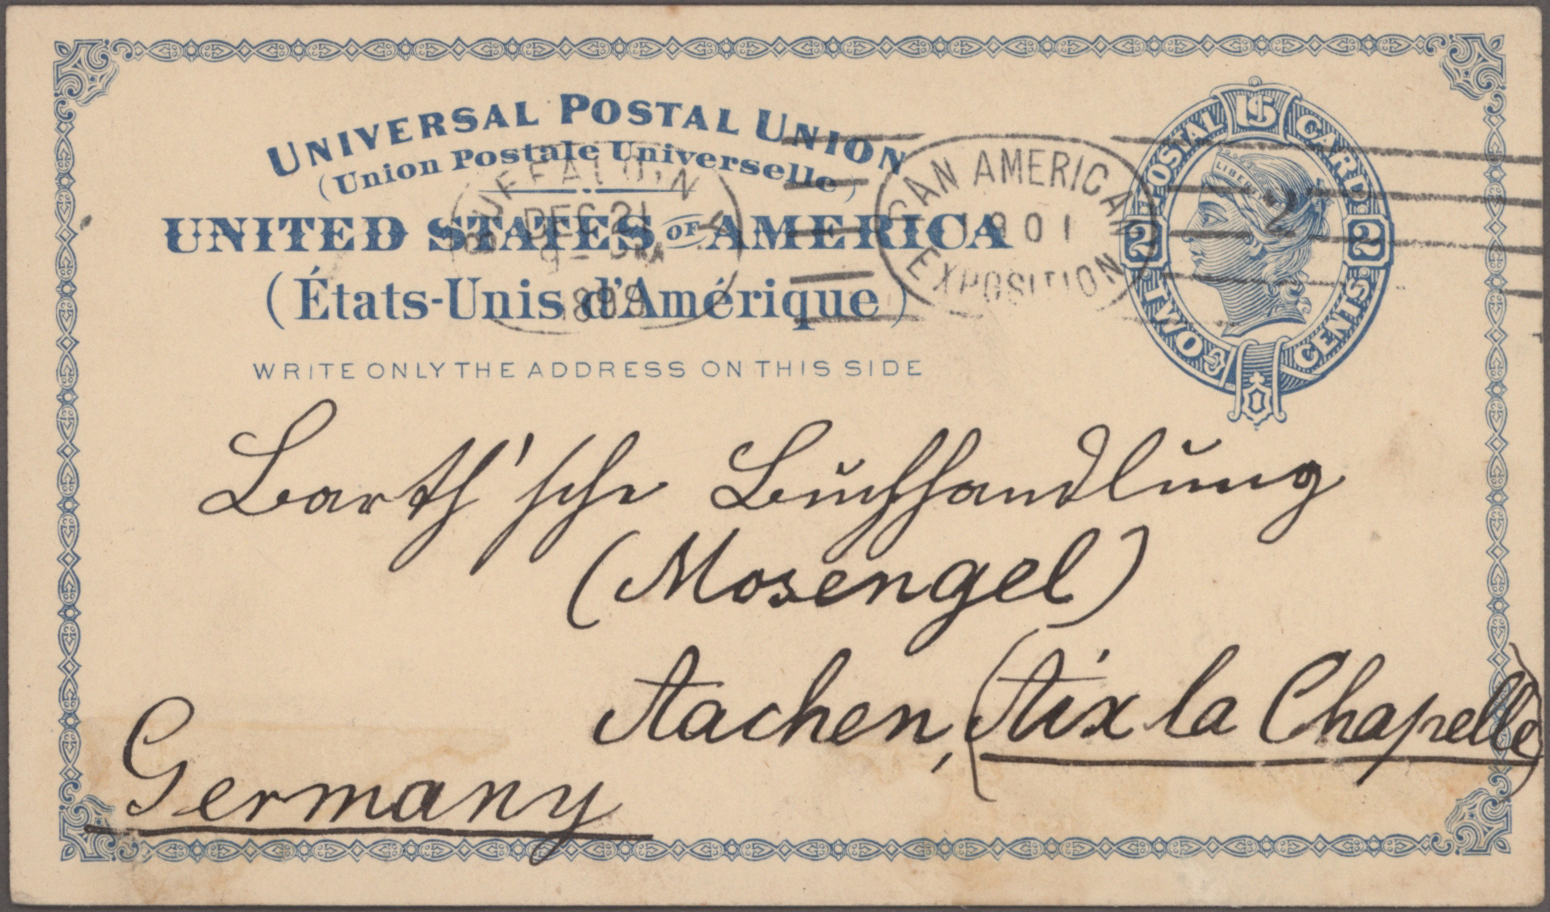 UNIVERSAL POSTAL UNION
(Union Postale Universelle)
UNITED STATES OF AMERICA
(États-Unis d'Amérique)
WRITE ONLY THE ADDRESS ON THIS SIDE
BUFFALO, N.Y.
DEC 21
1899
PAN AMERICAN
1901
EXPOSITION
2
US
POSTAL CARD
LIBERTY
2 2
TWO CENTS
Barth'sche Buchhandlung
(Mosengel)
Aachen, (Aix la Chapelle)
Germany